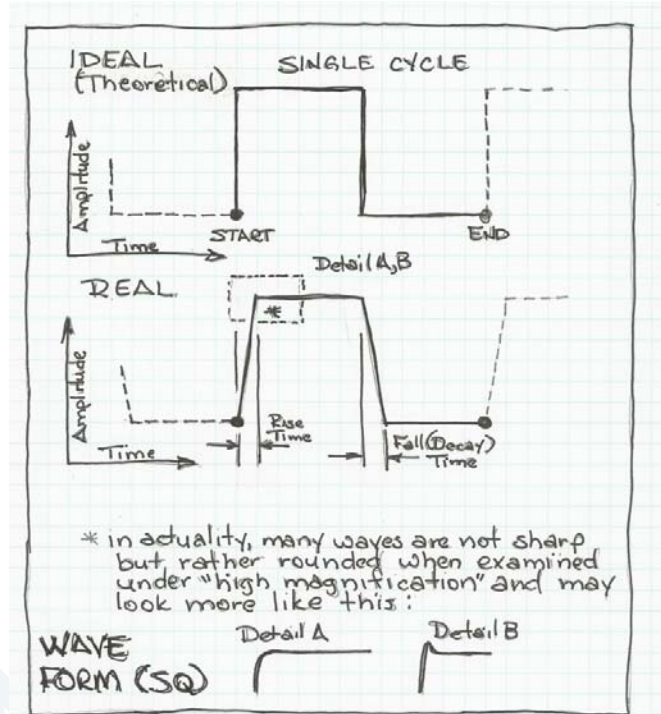 IDEAL
(Theoretical)
SINGLE CYCLE
Amplitude
Time
START
END
REAL
Detail A,B
*
Amplitude
Time
Rise
Time
Fall (Decay)
Time
* in actuality, many waves are not sharp
but rather rounded when examined
under "high magnification" and may
look more like this:
WAVE
FORM (SQ)
Detail A
Detail B